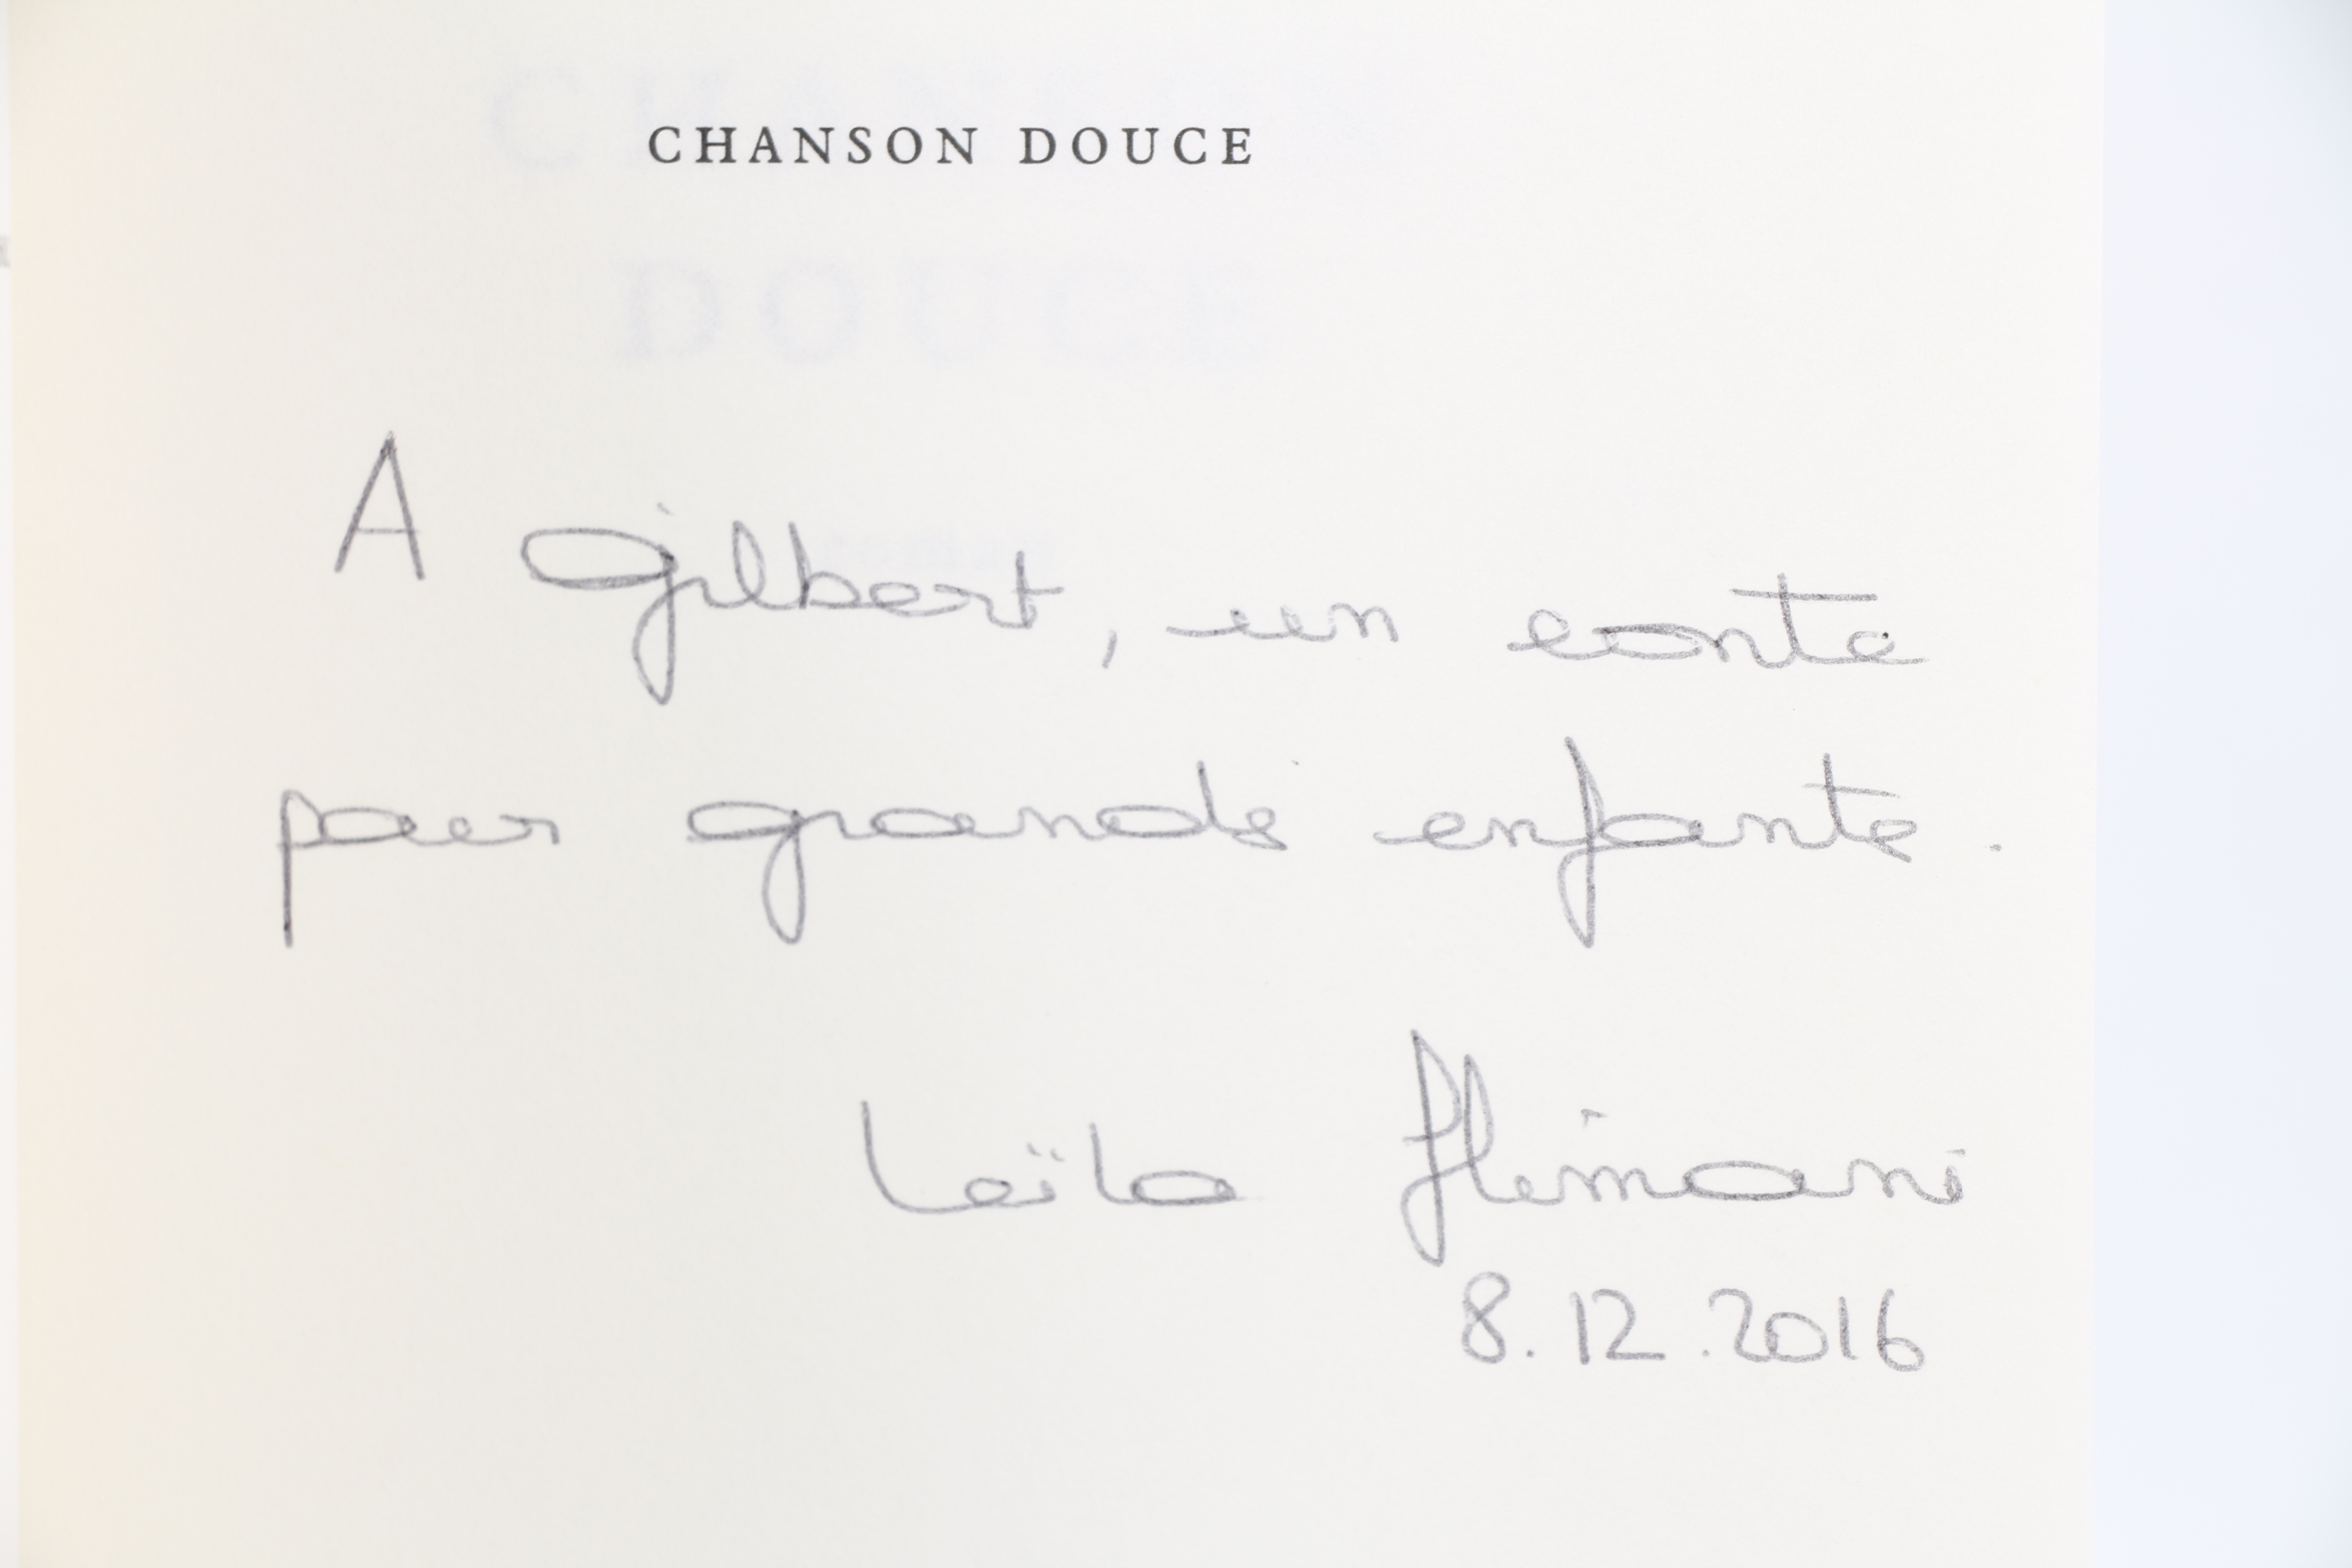 CHANSON DOUCE
CHANSON
DOUCE
roman
A Gilbert, un conte
pour grands enfants.
Leïla Slimani
8.12.2016